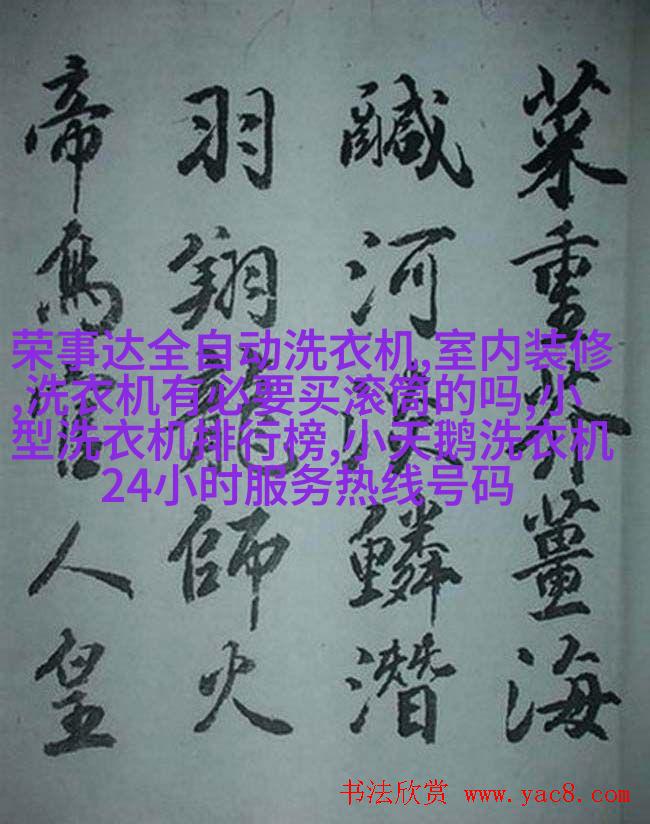 菜重芥薑海
鹹河淡鱗潛
羽翔龍師火
帝鳥官人皇
荣事达全自动洗衣机,室内装修
,洗衣机有必要买滚筒的吗,小
型洗衣机排行榜,小天鹅洗衣机
24小时服务热线号码
书法欣赏 www.yac8.com